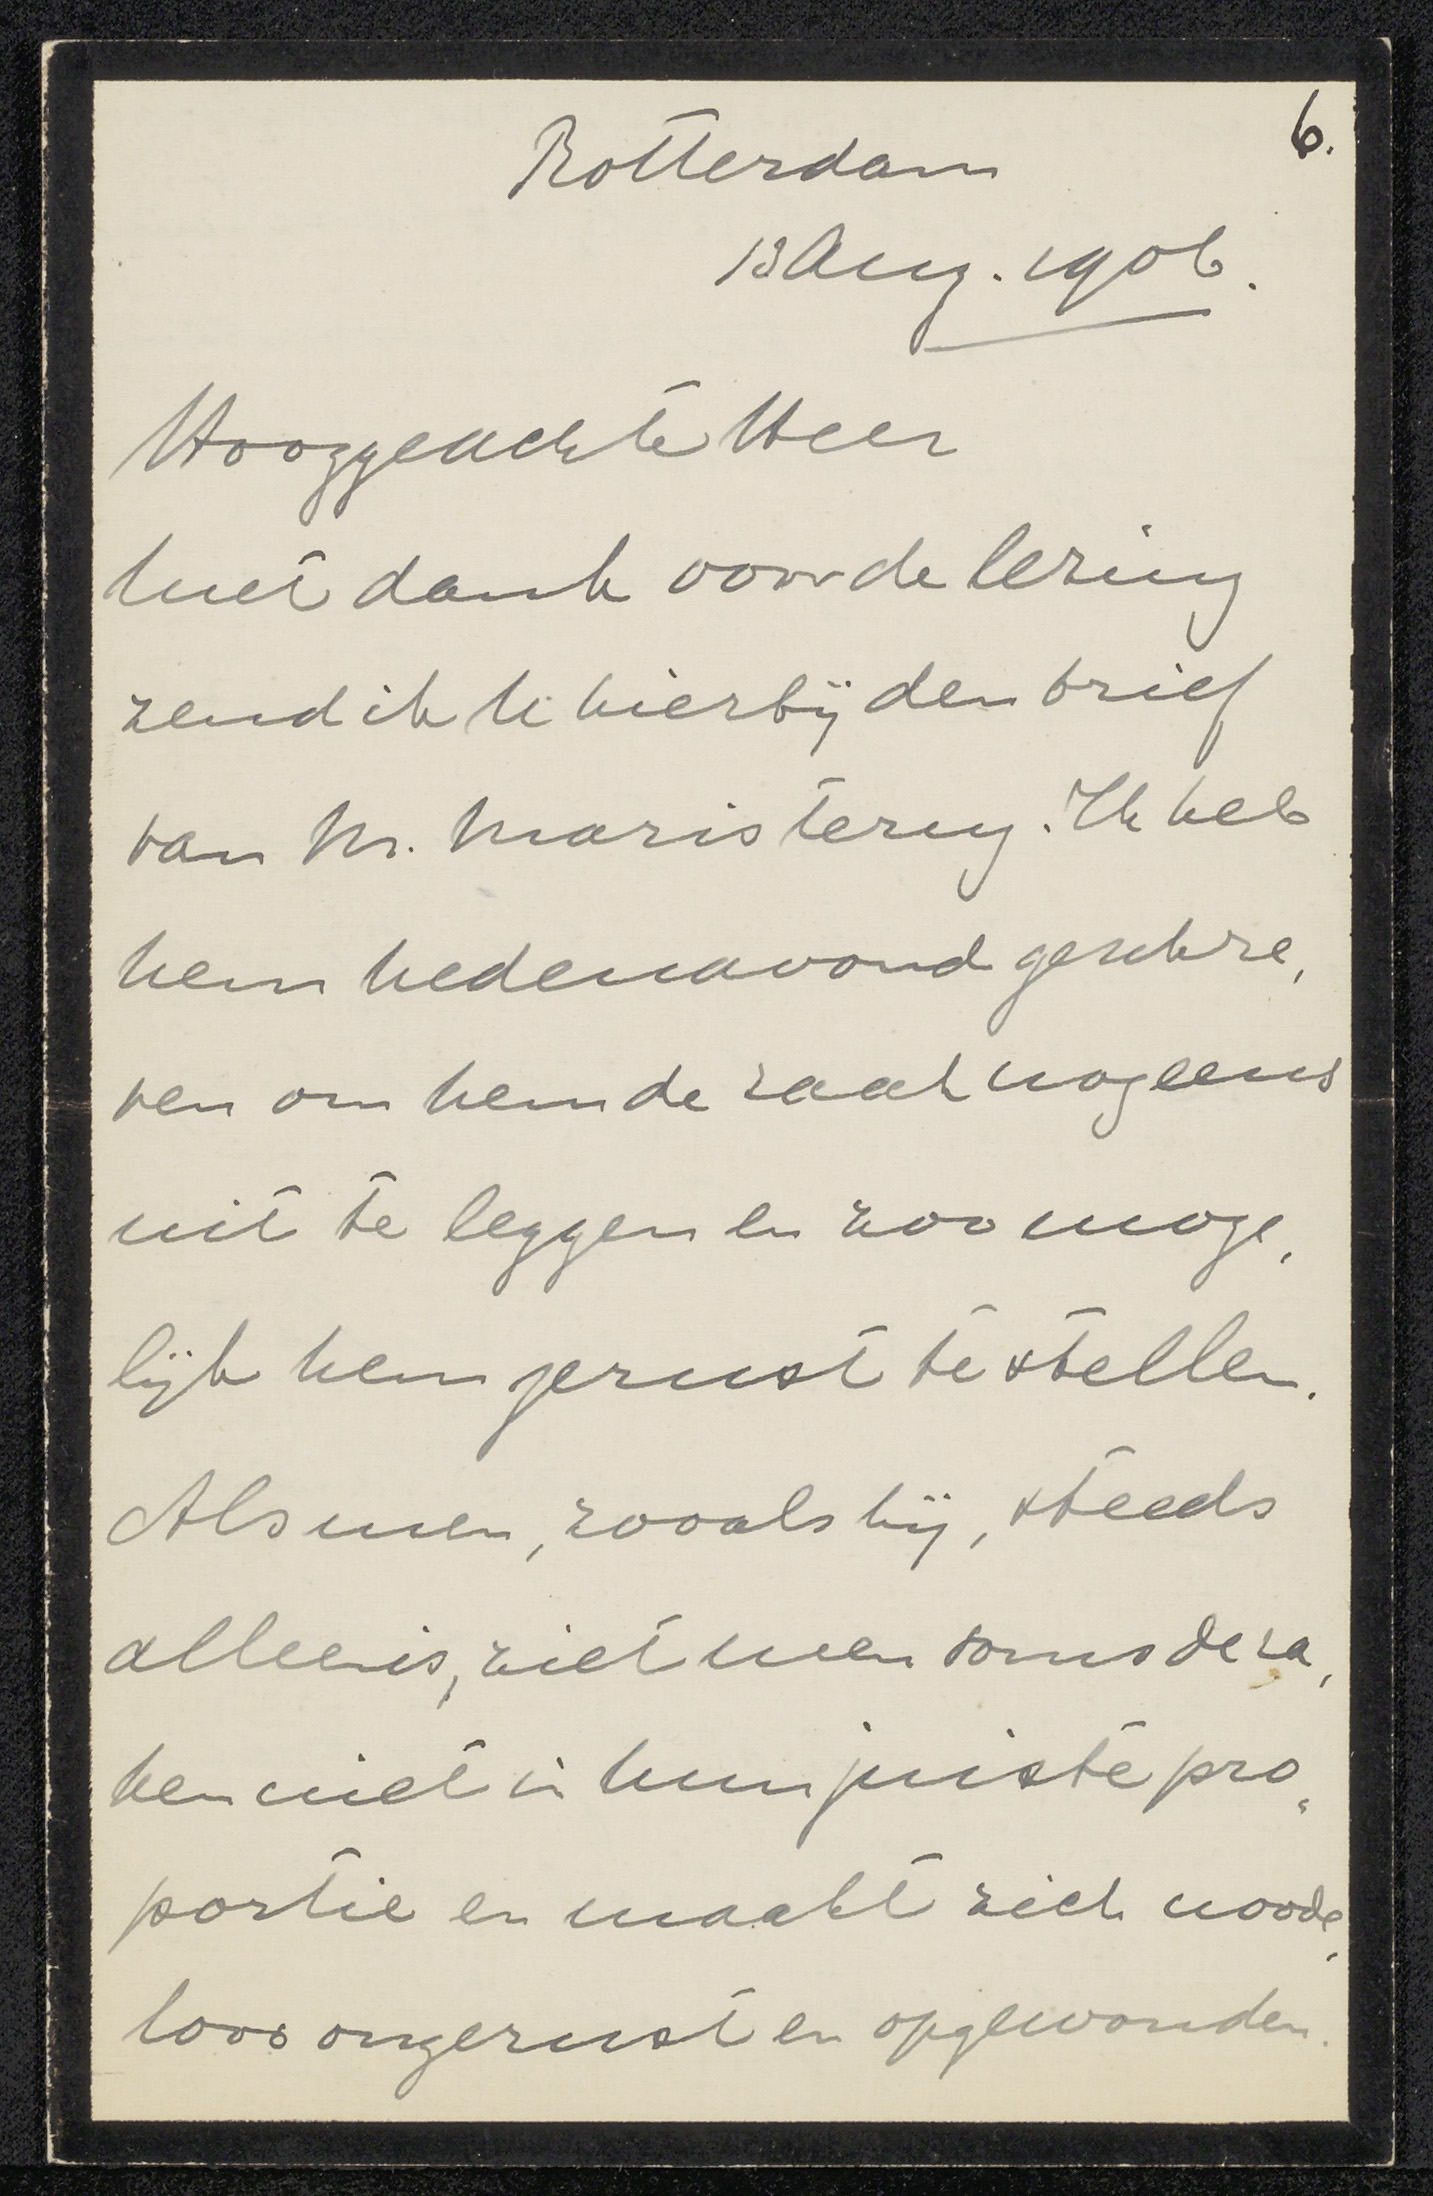 6.
Rotterdam
13 Aug. 1906.
Hooggeachte Heer
Met dank voor de lezing
zend ik U hierbij den brief
van M. Maris terug. Ik heb
hem hedenavond geschre,
ven om hem de zaak nog eens
uit te leggen en zoo moge,
lijk hem gerust te stellen.
Als men, zooals hij, steeds
alleen is, ziet men soms de za,
ken niet in hun juiste pro,
portie en maakt zich noode,
loos ongerust en opgewonden.